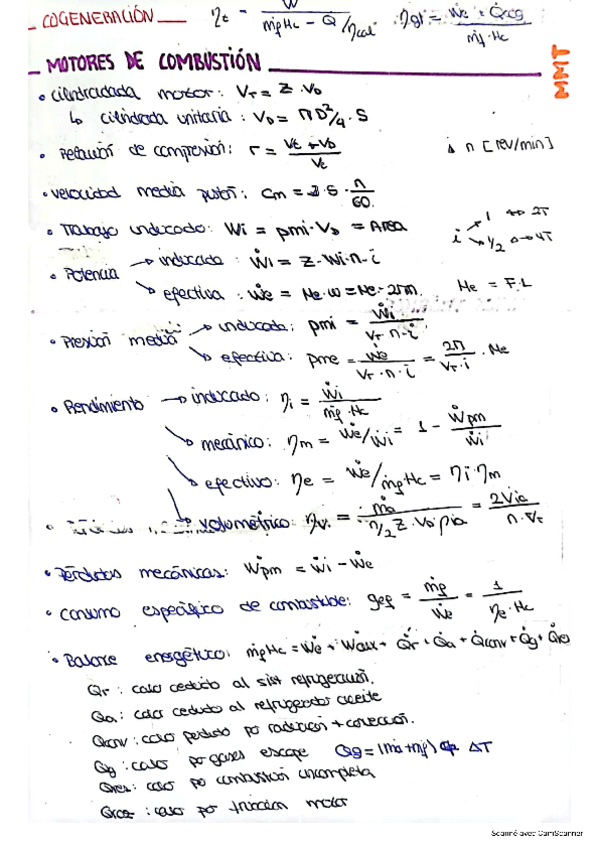 COGENERACIÓN ηe = W / (ṁf Hc - Q/ηcal) ηgl = (Ẇe + Q̇cg) / (ṁf · Hc)
MOTORES DE COMBUSTIÓN
MMT
• cilindrada motor: VT = Z · VD
↳ cilindrada unitaria: VD = π D²/4 · S
• Relación de compresión: r = (Vc + VD) / Vc
n [rev/min]
• velocidad media pistón: Cm = 2 · S · n/60
• Trabajo indicado: Wi = pmi · VD = Area
i → 1 ↔ 2T
→ 1/2 → 4T
• Potencia → indicada: Ẇi = Z · Wi · n · i
→ efectiva: Ẇe = Me · ω = Me · 2πn Me = F · L
• Presión media → indicada: pmi = Ẇi / (VT · n · i)
→ efectiva: pme = Ẇe / (VT · n · i) = 2π / (VT · i) · Me
• Rendimiento → indicado: ηi = Ẇi / (ṁf · Hc)
→ mecánico: ηm = Ẇe/Ẇi = 1 - Ẇpm / Ẇi
→ efectivo: ηe = Ẇe/ṁf Hc = ηi · ηm
→ volumétrico: ηv = ṁa / (n/2 Z · VD ρia) = 2 V̇ia / (n · Vt)
• Pérdidas mecánicas: Ẇpm = Ẇi - Ẇe
• consumo específico de combustible: gef = ṁf / Ẇe = 1 / (ηe · Hc)
• Balance energético: ṁf Hc = Ẇe + Ẇaux + Q̇r + Q̇a + Q̇conv + Q̇g + Q̇res
Qr: calor cedido al sist refrigeración.
Qa: calor cedido al refrigerador aceite
Qconv: calor perdido por radiación + convección.
Qg: calor por gases escape Qg = (ṁa + ṁf) cp ΔT
Qres: calor por combustión incompleta
calor por fricción motor
Scanné avec CamScanner